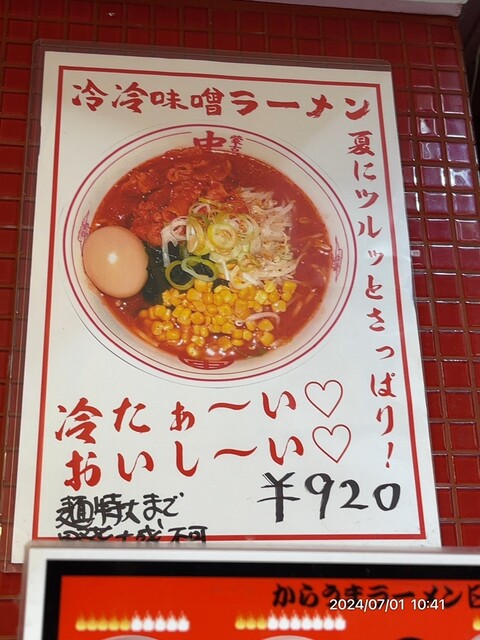 冷冷味噌ラーメン
夏にツルッとさっぱり!
中
冷たぁ〜い♡
おいし〜い♡
¥920
麺特大まで
不可
からうまラーメン
2024/07/01 10:41